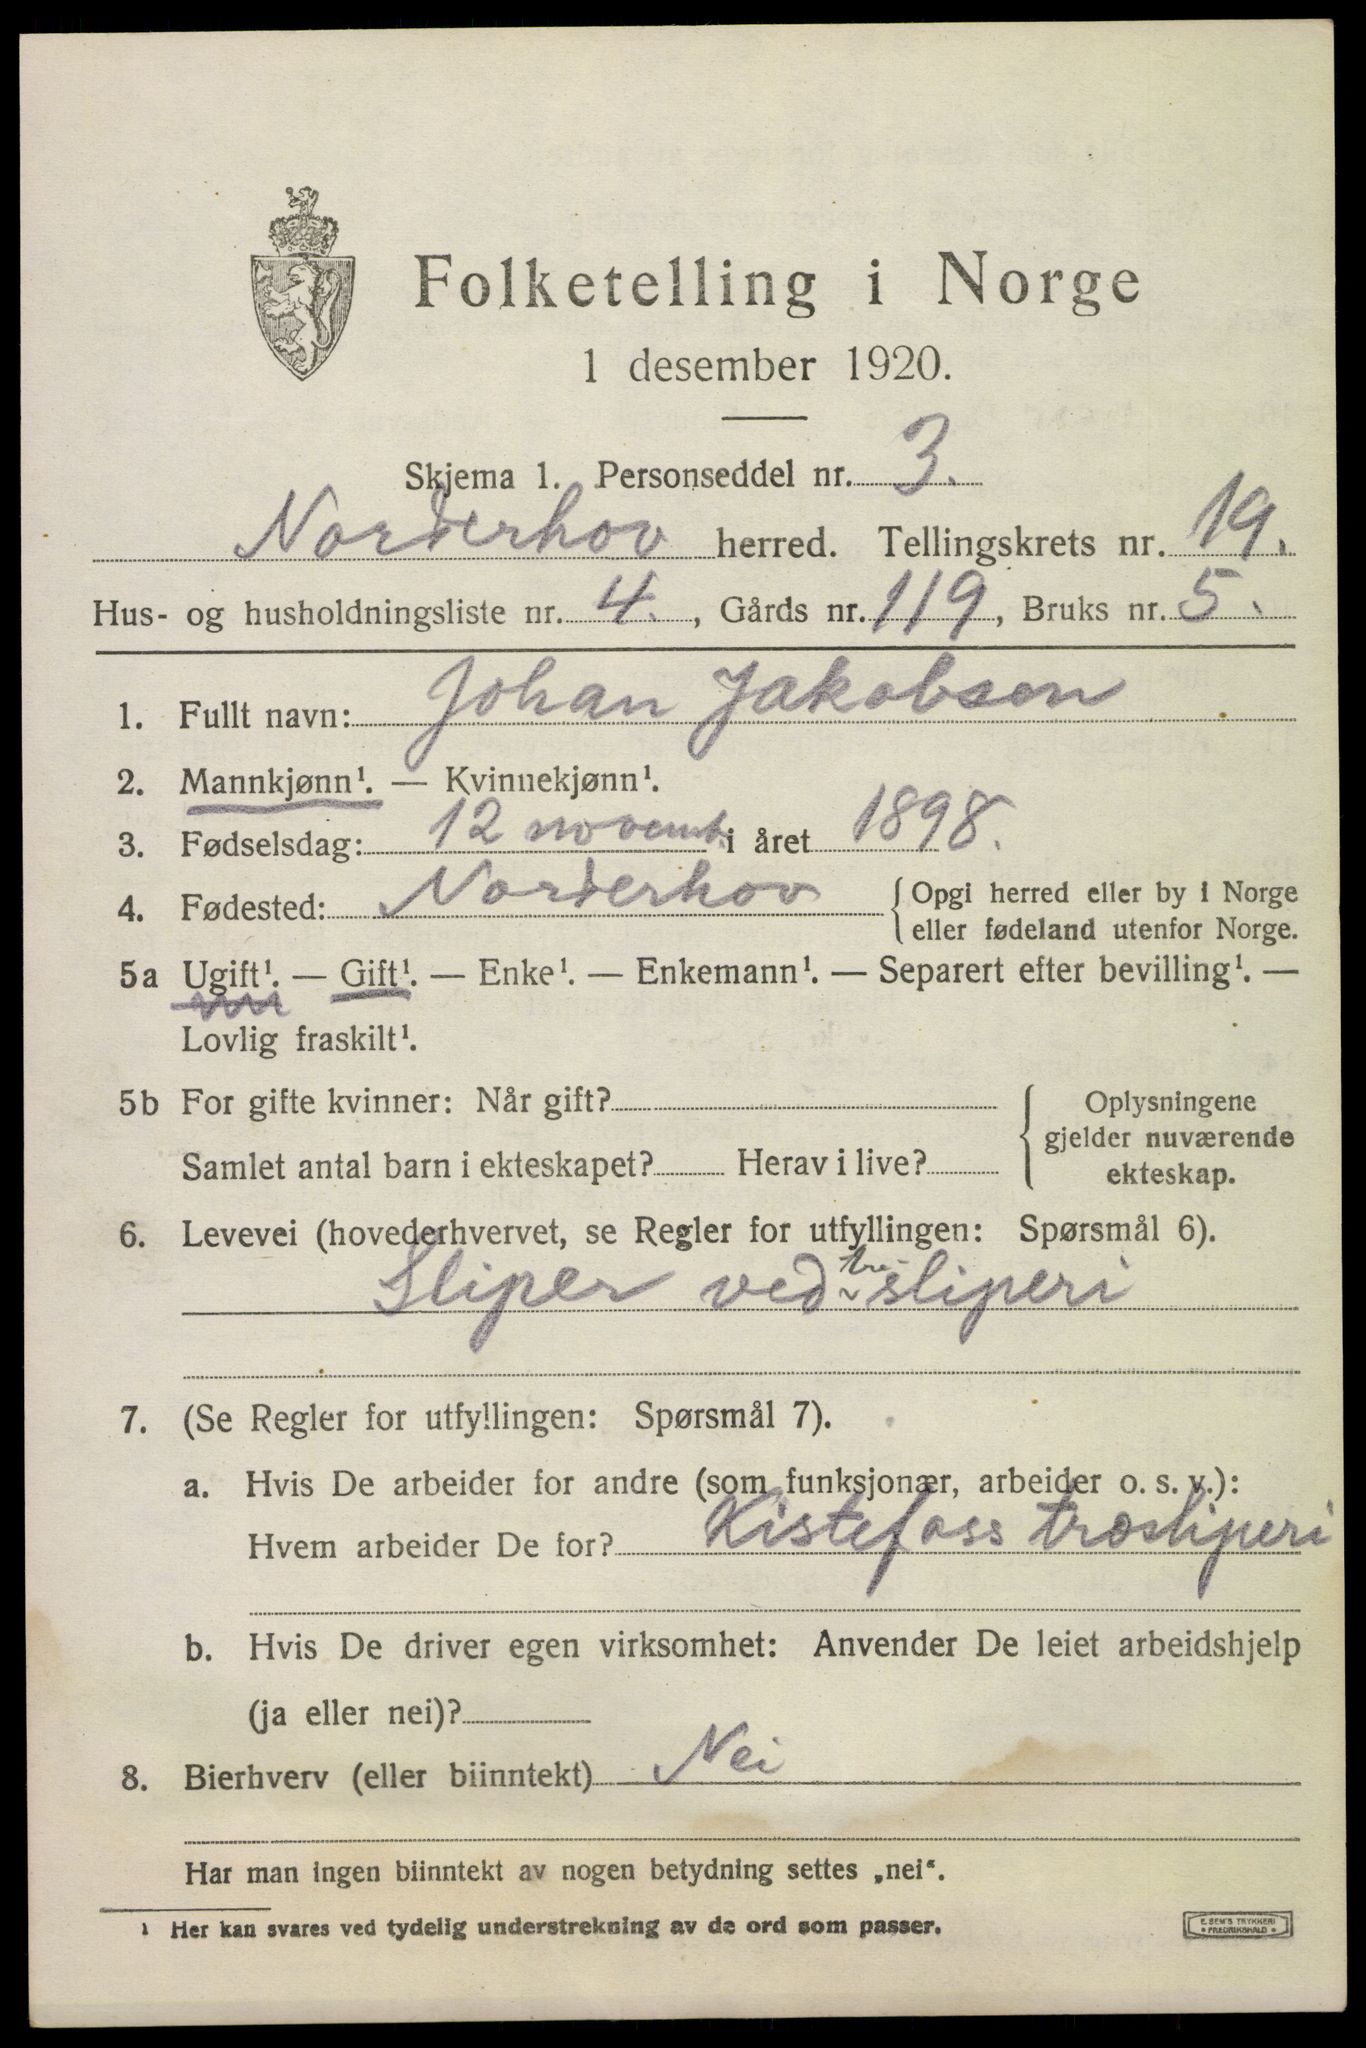 Folketelling i Norge
1 desember 1920.
Skjema 1. Personseddel nr. 3.
Norderhov herred. Tellingskrets nr. 19.
Hus- og husholdningsliste nr. 4. , Gårds nr. 119, Bruks nr. 5.
1. Fullt navn: Johan Jakobsen
2. Mannkjønn¹. — Kvinnekjønn¹.
3. Fødselsdag: 12 novemb. i året 1898.
4. Fødested: Norderhov { Opgi herred eller by i Norge
eller fødeland utenfor Norge.
5a Ugift¹. — Gift¹. — Enke¹. — Enkemann¹. — Separert efter bevilling¹. —
Lovlig fraskilt¹.
5b For gifte kvinner: Når gift? { Oplysningene
gjelder nuværende
Samlet antal barn i ekteskapet? Herav i live? ekteskap.
6. Levevei (hovederhvervet, se Regler for utfyllingen: Spørsmål 6).
Sliper ved tre- sliperi
7. (Se Regler for utfyllingen: Spørsmål 7).
a. Hvis De arbeider for andre (som funksjonær, arbeider o. s. v.):
Hvem arbeider De for? Kistefoss træsliperi
b. Hvis De driver egen virksomhet: Anvender De leiet arbeidshjelp
(ja eller nei)?
8. Bierhverv (eller biinntekt) Nei
Har man ingen biinntekt av nogen betydning settes „nei“.
¹ Her kan svares ved tydelig understrekning av de ord som passer.
E. SEM'S TRYKKERI
• FREDRIKSHALD •